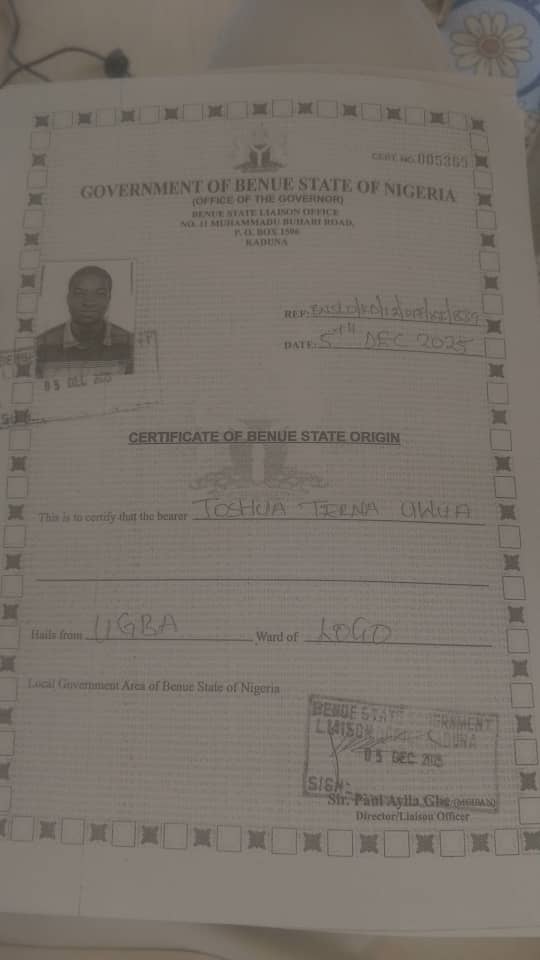 CERT. NO. 005365
GOVERNMENT OF BENUE STATE OF NIGERIA
(OFFICE OF THE GOVERNOR)
BENUE STATE LIAISON OFFICE
NO. 11 MUHAMMADU BUHARI ROAD,
P. O. BOX 1596
KADUNA
REF:
DATE: 5TH DEC 2025
05 DEC 2025
CERTIFICATE OF BENUE STATE ORIGIN
This is to certify that the bearer JOSHUA TERNA UWUA
Hails from UGBA Ward of LOGO
Local Government Area of Benue State of Nigeria
BENUE STATE GOVERNMENT
LIAISON KADUNA
05 DEC 2025
SIGN:
Sir. Paul
Director/Liaison Officer